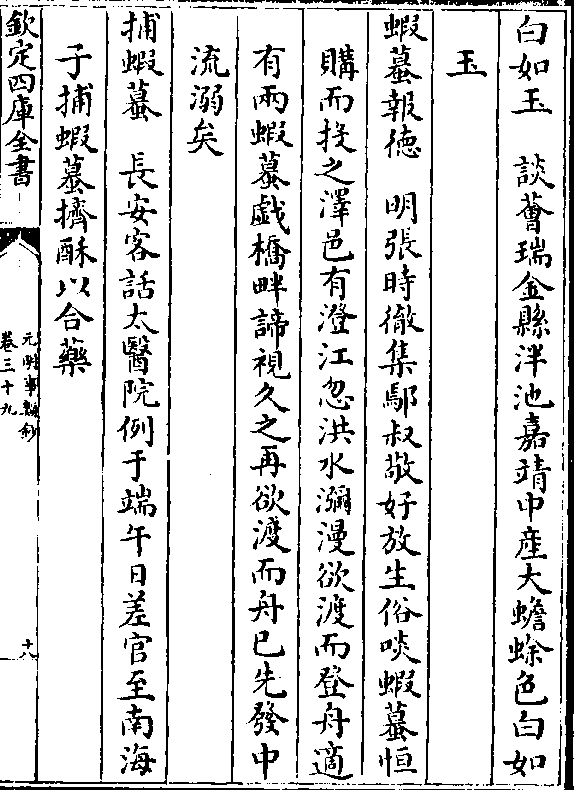 白如玉　談薈瑞金縣泮池嘉靖中産大蟾蜍色白如
玉
蝦蟇報德　明張時徹集鄢叔敬好放生俗啖蝦蟇恒
購而投之澤邑有澄江忽洪水瀰漫欲渡而登舟適
有兩蝦蟇戯橋畔諦視久之再欲渡而舟已先發中
流溺矣
捕蝦蟇　長安客話太醫院例于端午日差官至南海
子捕蝦蟇擠酥以合藥
欽定四庫全書
元明事類鈔
卷三十九
十八